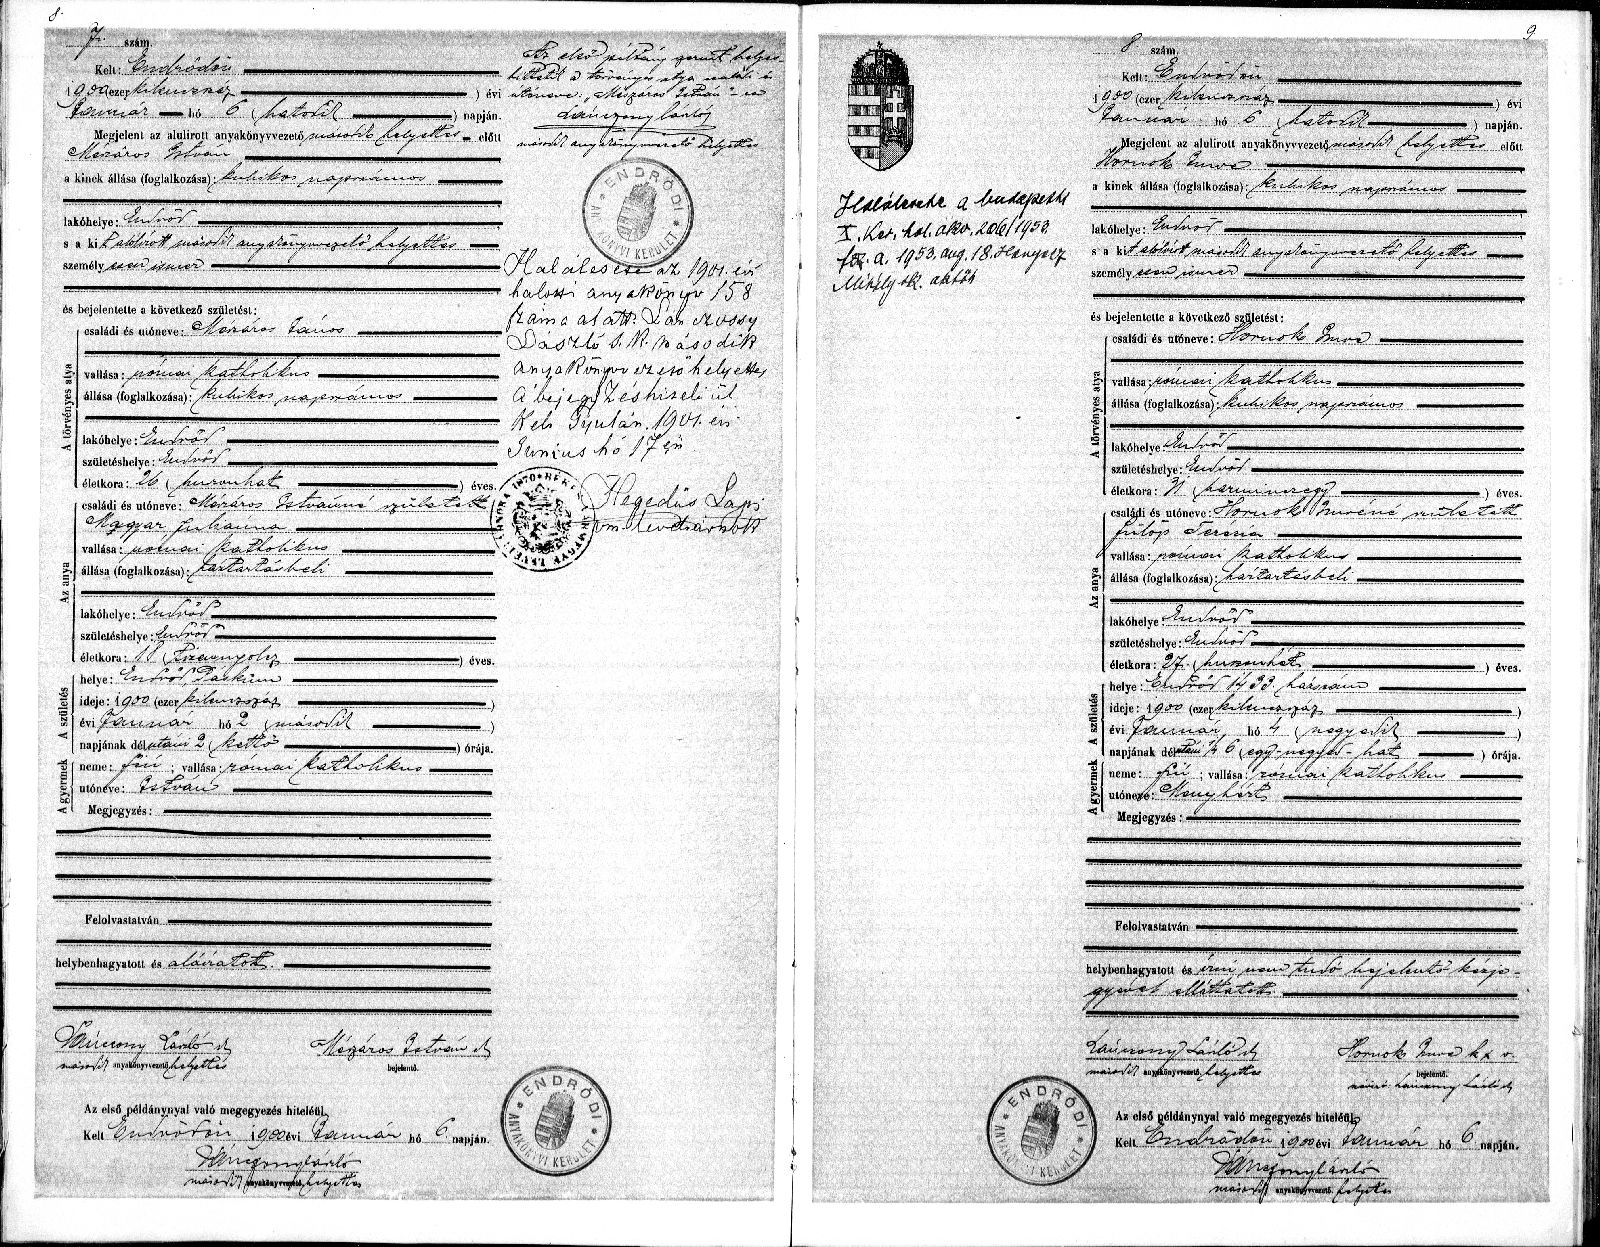 8.
7. szám.
Kelt: Endrődön
1900 (ezer kilenczszáz ) évi
Január hó 6 (hatodik ) napján.
Megjelent az alulirott anyakönyvvezető, második helyettes előtt
Mészáros István
a kinek állása (foglalkozása): kubikos napszámos
lakóhelye: Endrőd
s a kit alólirott második anyakönyvvezető helyettes
személyesen ismer
és bejelentette a következő születést:
A törvényes atya
családi és utóneve: Mészáros János
vallása: római katholikus
állása (foglalkozása): kubikos napszámos
lakóhelye: Endrőd
születéshelye: Endrőd
életkora: 26 (huszonhat ) éves.
Az anya
családi és utóneve: Mészáros Istvánné született
Magyar Julianna
vallása: római katholikus
állása (foglalkozása): háztartásbeli
lakóhelye: Endrőd
születéshelye: Endrőd
életkora: 18 (tizennyolcz ) éves.
A születés
helye: Endrőd,
ideje: 1900 (ezer kilenczszáz )
évi Január hó 2 (második )
napjának délután 2 (kettő ) órája.
A gyermek
neme: fiú ; vallása: római katholikus
utóneve: István
Megjegyzés:
Felolvastatván
helybenhagyatott és aláiratott.
Lánczony László sk
második anyakönyvvezető helyettes
Mészáros István sk
bejelentő.
Az első példánynyal való megegyezés hiteléül
Kelt Endrődön 1900 évi Január hó 6 napján.
Lánczony László
második anyakönyvvezető helyettes
ENDRŐDI
ANYAKÖNYVI KERÜLET
Az első példány szerint helyes
bittetik a törvényes atya családi és
utóneve: "Mészáros István"-ra
Lánczony László
második anyakönyvvezető helyettes
ENDRŐDI
ANYAKÖNYVI KERÜLET
Halálesete az 1901. évi
halotti anyakönyv 158
száma alatt. Lánczossy
László s. k. második
anyakönyvvezető helyettes
A bejegyzés hiteléül
Kelt Gyulán, 1901. évi
Junius hó 17 én
Hegedűs Lajos
vm. levéltárnok
9
8 szám.
Kelt: Endrődön
1900 (ezer kilenczszáz ) évi
Január hó 6 (hatodik ) napján.
Megjelent az alulirott anyakönyvvezető, második helyettes előtt
Hornok Imre
a kinek állása (foglalkozása): kubikos napszámos
lakóhelye: Endrőd
s a kit alólirott második anyakönyvvezető helyettes
személyesen ismer
és bejelentette a következő születést:
A törvényes atya
családi és utóneve: Hornok Imre
vallása: római katholikus
állása (foglalkozása): kubikos napszámos
lakóhelye: Endrőd
születéshelye: Endrőd
életkora: 31 (harminczegy ) éves.
Az anya
családi és utóneve: Hornok Imréné született
Fülöp Terézia
vallása: római katholikus
állása (foglalkozása): háztartásbeli
lakóhelye: Endrőd
születéshelye: Endrőd
életkora: 27. (huszonhét ) éves.
A születés
helye: Endrőd 1433 házszám
ideje: 1900 (ezer kilenczszáz )
évi Január, hó 4 (negyedik )
napjának délután 1/4 6 (egy-negyed-hat ) órája.
A gyermek
neme: fiú ; vallása: római katholikus
utóneve: Menyhért
Megjegyzés:
Felolvastatván
helybenhagyatott és írni nem tudó bejelentő kézje-
gyével elláttatott
Lánczony László sk
második anyakönyvvezető, helyettes
Hornok Imre k x v.
bejelentő.
névíró: Lánczony László sk
Az első példánynyal való megegyezés hiteléül
Kelt Endrődön 1900 évi Január hó 6 napján.
Lánczony László
második anyakönyvvezető helyettes
ENDRŐDI
ANYAKÖNYVI KERÜLET
Halálesete a budapesti
X. Ker. hal. akv. 206/1953.
a. 1953. aug. 18. Hanyecz
Mihály sk.